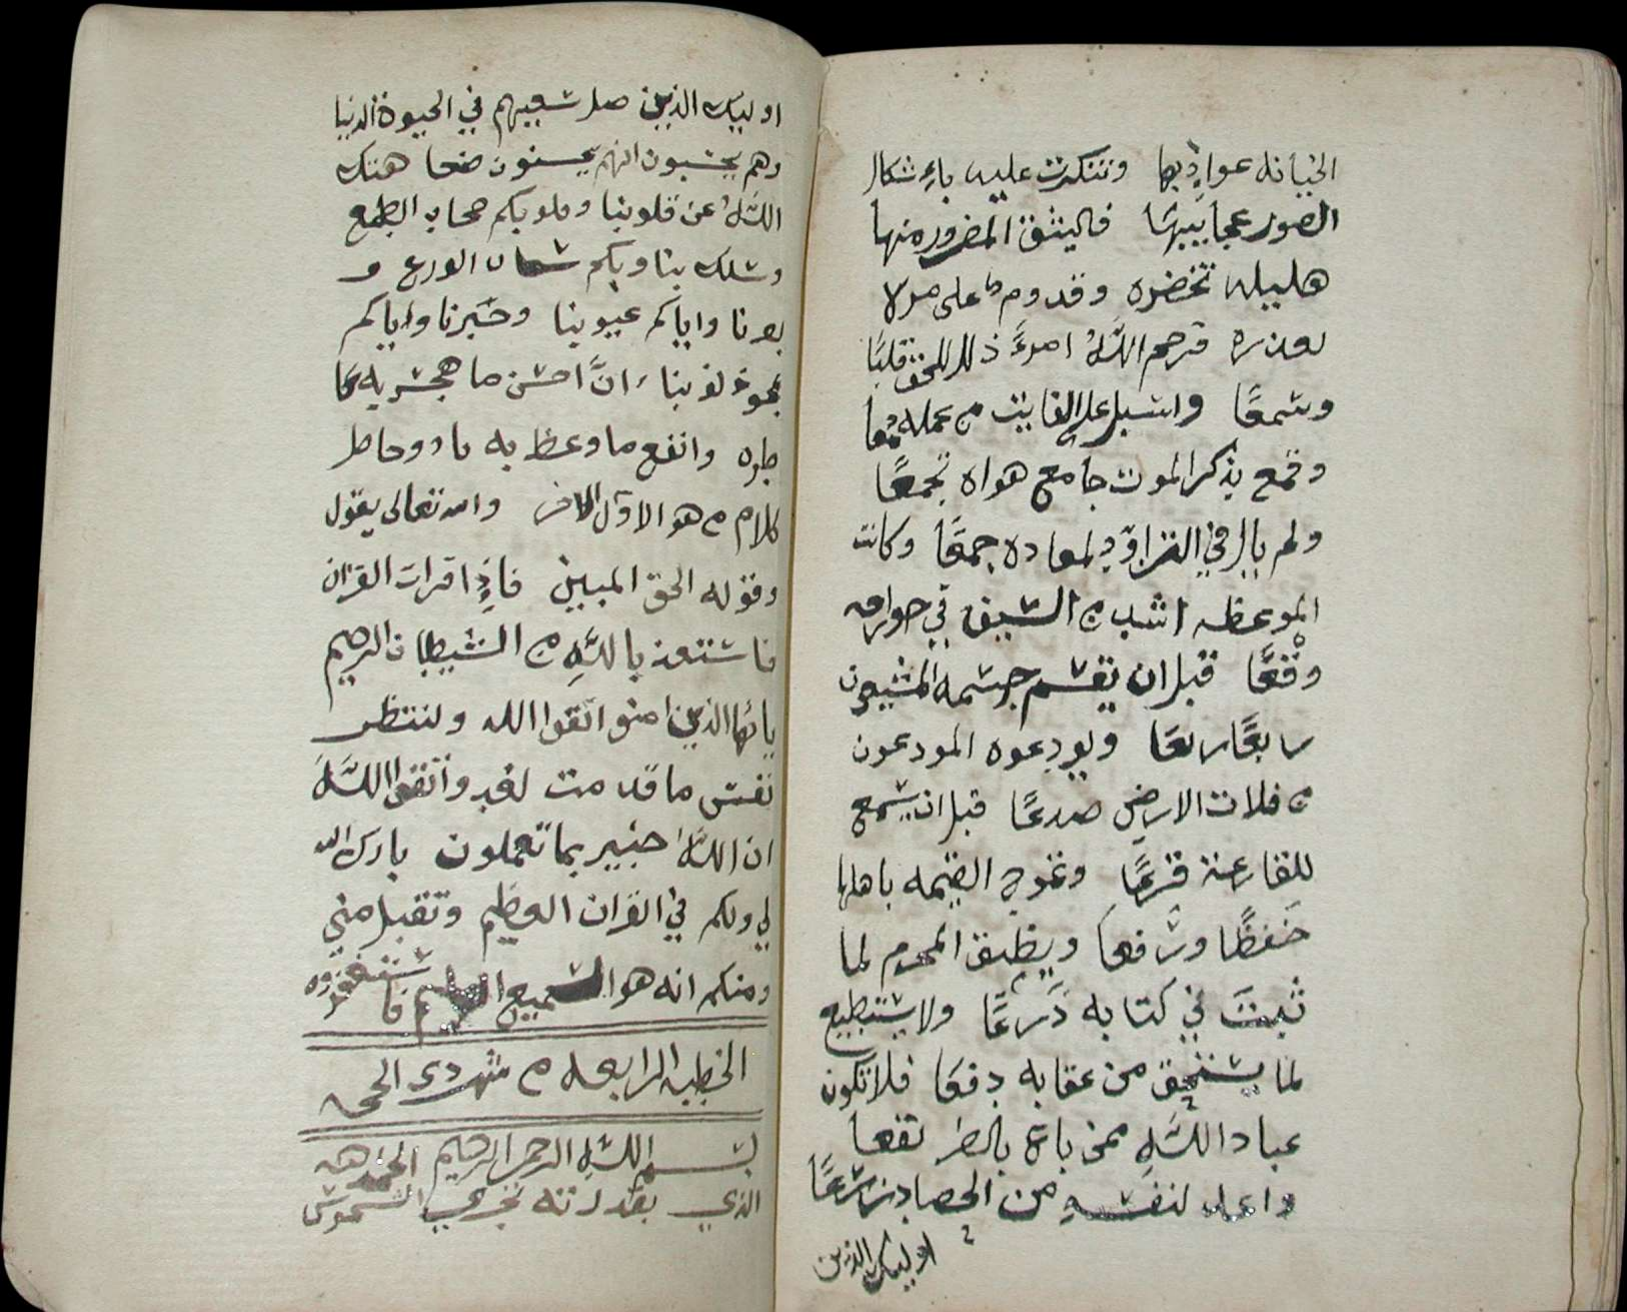 الخيانه عواذبها وتنكرت عليه باءشكال
الصور عجايبها فاليثق المغرور منها
تخضره وقدوم على مولا
فرحم اللّٰه امرءً ذلل للحق قلبًا
وسمعًا واسبل على الفايت من عمله دمعا
وقمع بذكر الموت جامع هواه قمعًا
ولم يال في التزاوّد لمعاده جمعًا وكانت
الموعظه اشد من السيف في جوارحه
وقْعًا قبل ان يقسم جسمه المشيعون
ربعًا ربعا ويودعوه المودعون
من فلات الارض صدعًا قبل ان يسمع
للقارعة قرعًا وتموج القيمه باهلها
خفظًا ورفعا ويظيق المجرم لما
ثبت في كتابه ذَرعًا ولا يستطيع
لما يستحق من عقابه دفعا فلا تكون
عباد اللّٰهِ ممن باع بالضر نفعا
واعد لنفسهِ من الحصاد زرعًا
اوليك الذين
اوليك الذين ضل سعيهم في الحيوة الدنيا
وهم يحسبون انهم يحسنون صنعا هتك
اللّٰهُ عن قلوبنا وقلوبكم حجاب الطمع
وسلك بنا وبكم الورع و
بصرنا واياكم عيوبنا وخبرنا واياكم
بمحو ذنوبنا انَّ احسن ما
طره وانفع ما وعظ به
كلام من هو الاوّل الاخر والله تعالى يقول
وقوله الحق المبين فاذِا قرات القران
فاستعذ باللّٰهِ من الشيطان الرجيم
يا ئها الذين امنو اتقوا الله ولتنظر
نفس ما قدمت لغدٍ واتقوا اللّٰهَ
ان اللّٰهَ خبير بما تعملون بارك الله
لي ولكم في القران العظيم وتقبل مني
ومنكم انه هو السميع العليم فاستغفروه
الخطبه الرابعه من شهر ذي الحجه
بسم اللّٰهِ الرحمن الرحيم الحمد لله
الذي بقدرته تجري الشموس